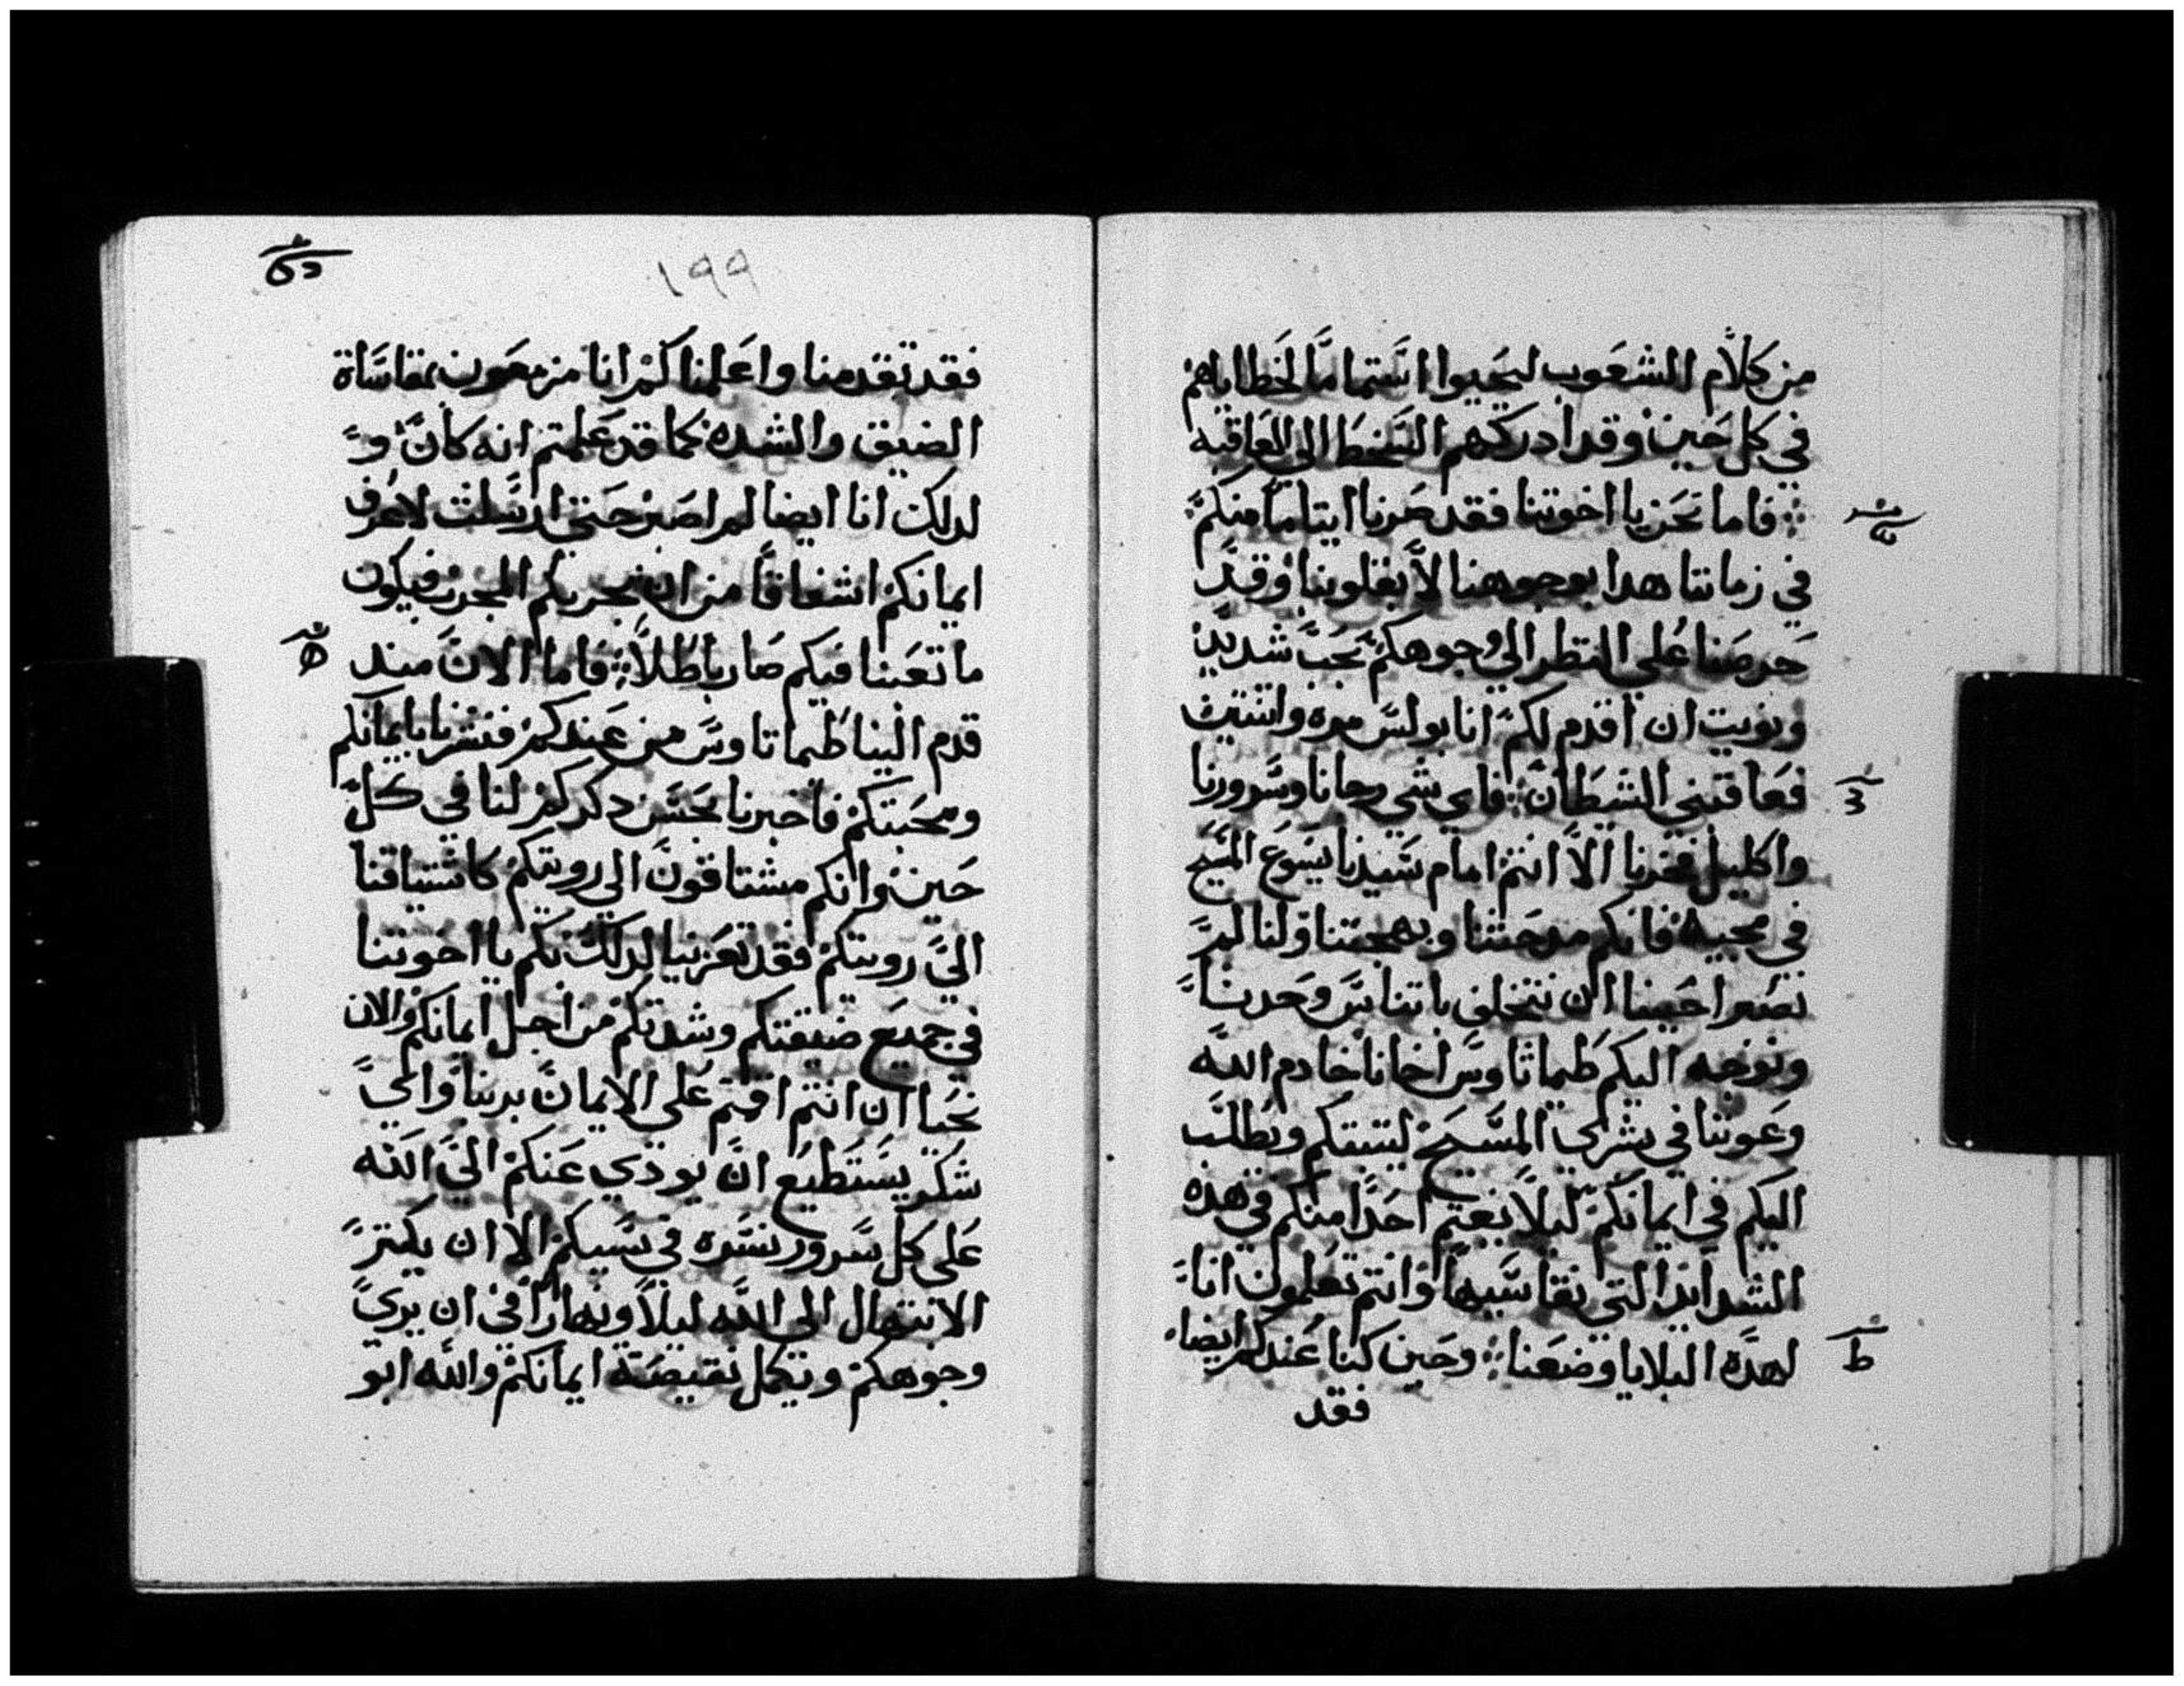 من كلام الشعوب ليحيوا استماما لخطاياهم
في كل حين وقد ادركهم السخط الى العاقبه
فاما نحن يا اخوتنا فقد صرنا ايتاما منكم
في زماننا هدا بوجوهنا لا بقلوبنا وقد
حرصنا على النظر الى وجوهكم بحب شديد
ونويت ان اقدم لكم انا بولس مره واتنتين
فعاقني الشيطان فاي شي رجانا وسرورنا
واكليل فخرنا الا انتم امام سيدنا يسوع المسيح
في مجيه فانكم مدحتنا وبهجتنا ولنا لم
نصبر احببنا ان نتخلف باتناس وحدنا
ونوجه اليكم طيماتاوس اخانا خادم الله
وعوننا في بشرى المسيح ليتبتكم ويطلب
اليكم في ايمانكم ليلا يغتم احدا منكم في هده
الشدايد التي نقاسيها وانتم تعلمون انا
لهده البلايا وضعنا وحين كنا عندكم ايضا
فقد
١٩٩
فقد تقدمنا واعلمناكم انا مزمعون بمقاساة
الضيق والشده كما قد علمتم انه كان و
لدلك انا ايضا لم اصبر حتى ارسلت لاعرف
ايمانكم اشفاقا من ان يجربكم المجرب فيكون
ما تعبنا فيكم صار باطلا فاما الان مند
قدم الينا طيماتاوس من عندكم فبشرنا بايمانكم
ومحبتكم فاخبرنا بحسن دكركم لنا في كل
حين وانكم مشتاقون الى رويتكم كاشتياقنا
الى رويتكم فقد تعزينا لدلك بكم يا اخوتنا
في جميع ضيقتكم وشدتكم من اجل ايمانكم والان
نحيا ان انتم اقمتم على الايمان بربنا واي
شكر يستطيع ان يودي عنكم الى الله
على كل سرور نسره في سببكم الا ان يكتر
الابتهال الى الله ليلا ونهارا في ان يرى
وجوهكم ويكمل نقيصة ايمانكم والله ابو